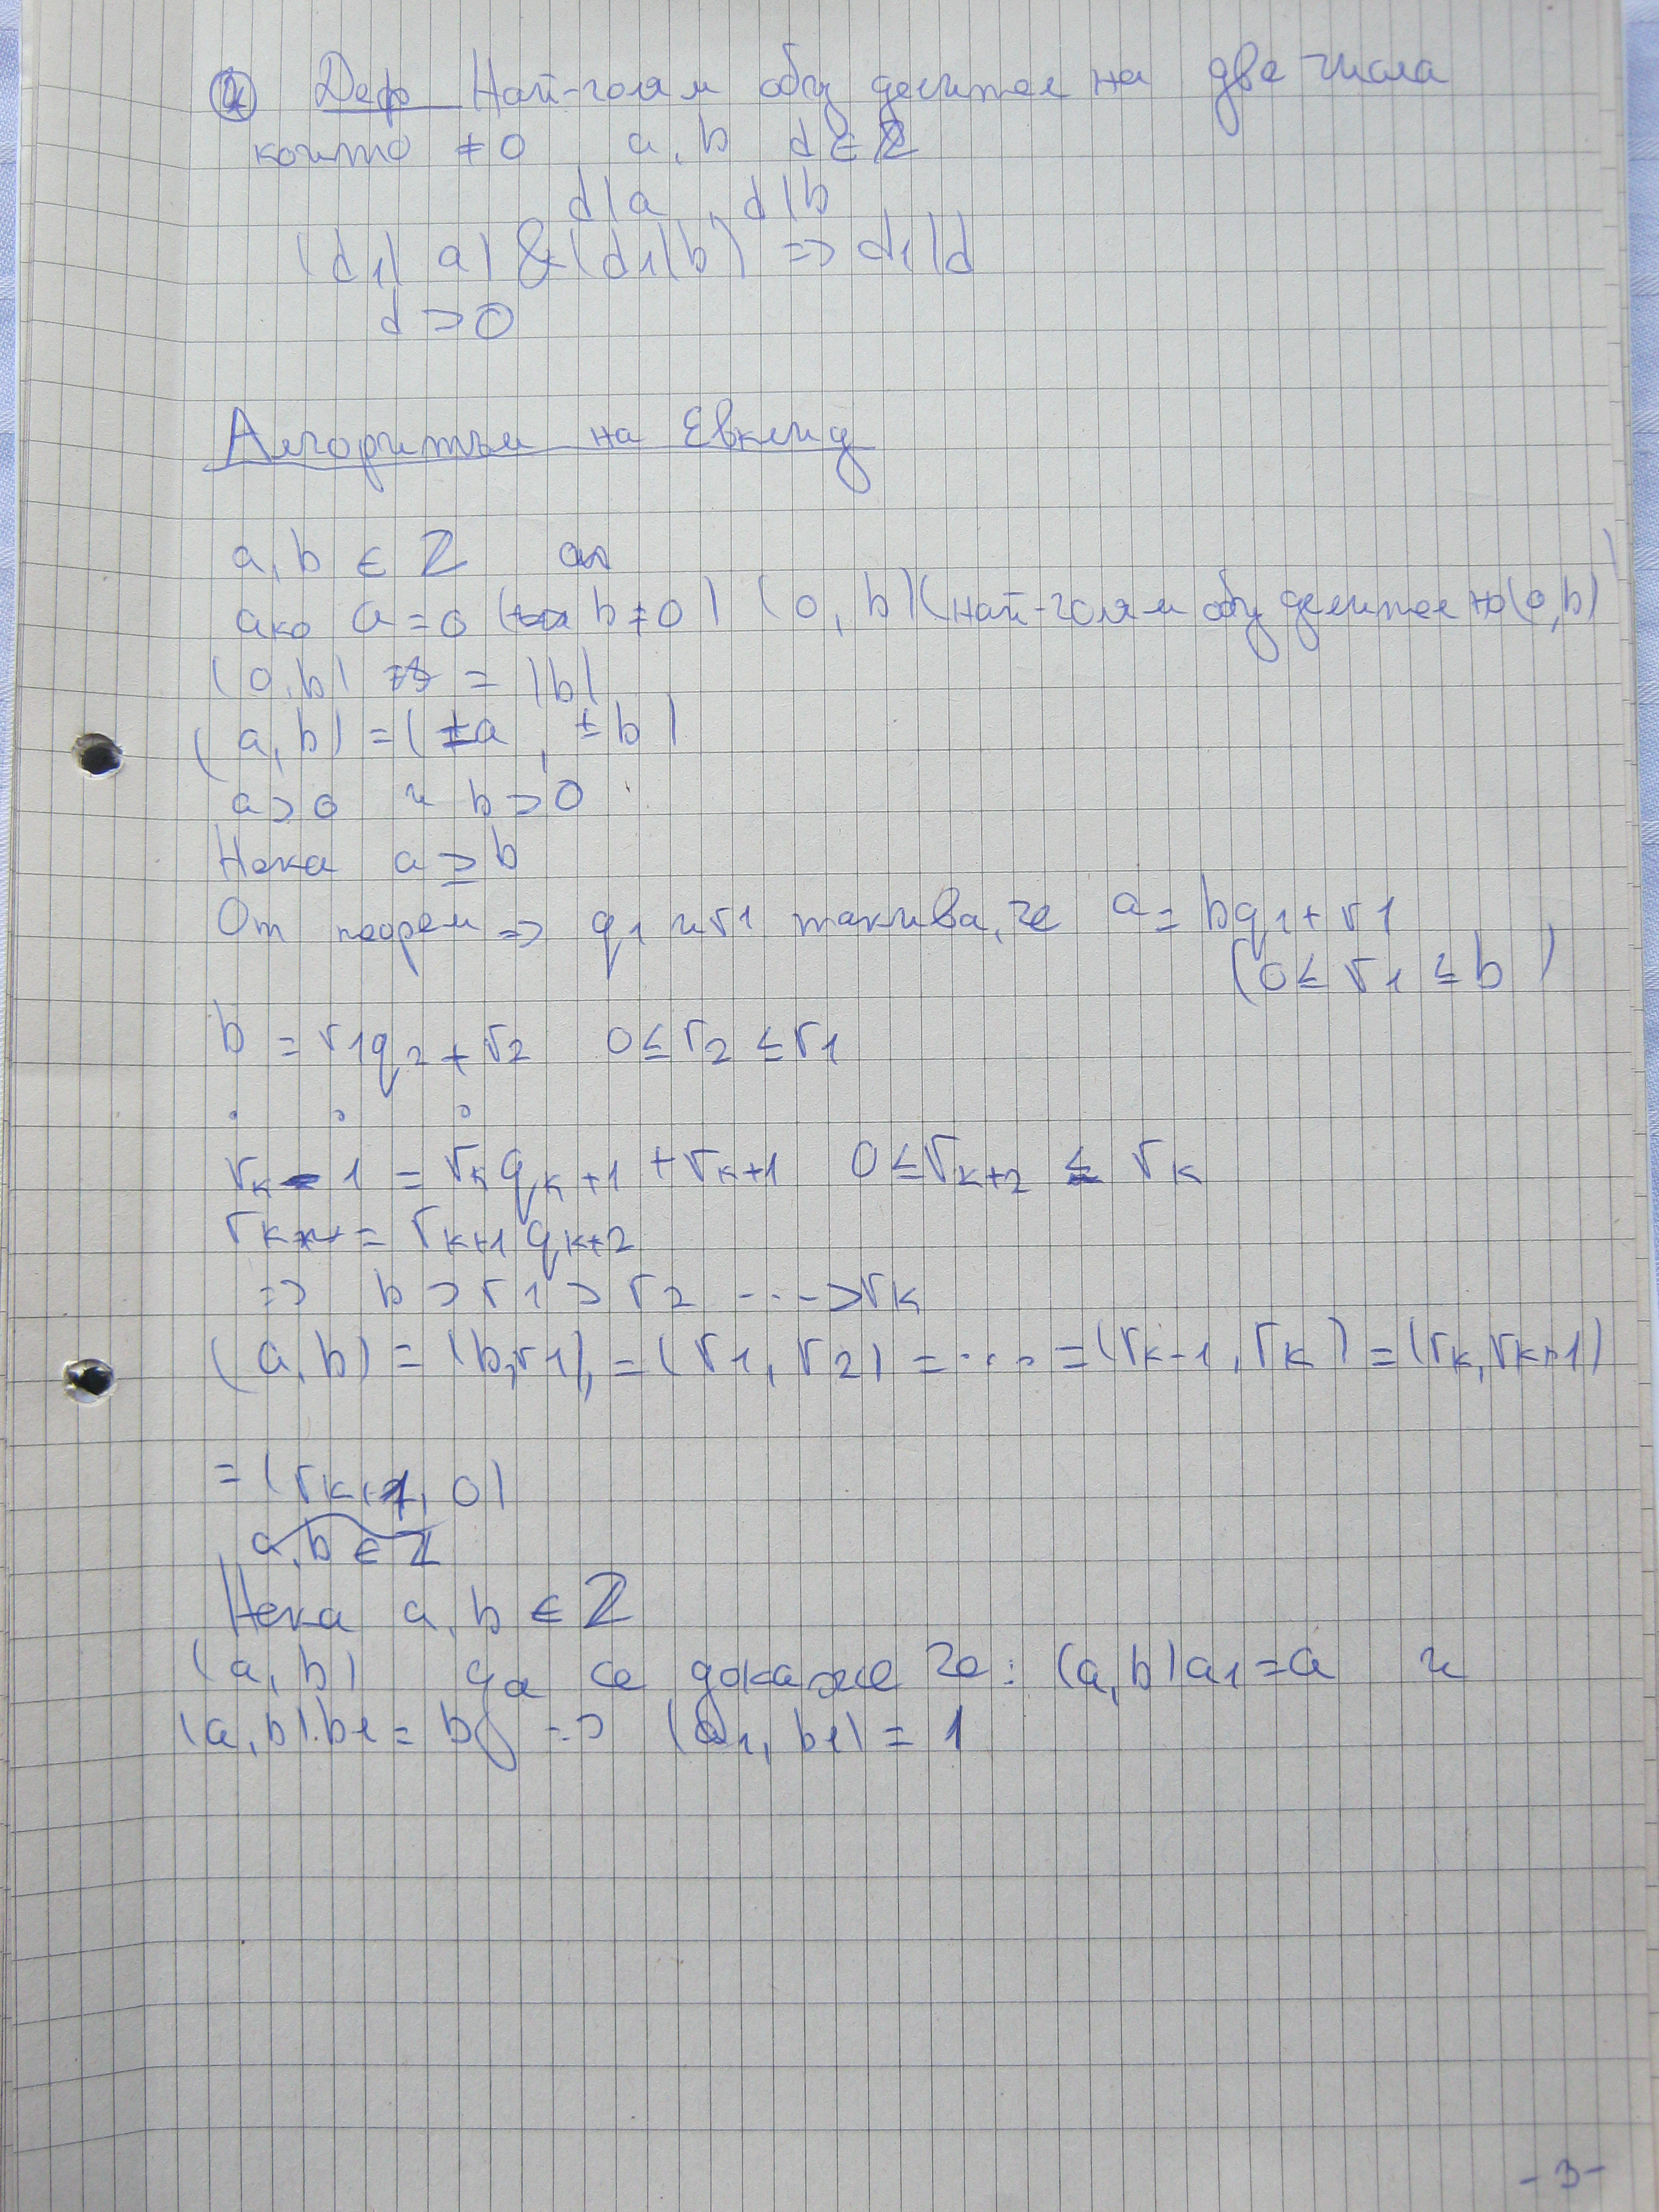 Деф Най-голям общ делител на две числа
които ≠0 a, b d ∈ Z
d|a , d|b
(d1| a) & (d1|b) => d1|d
d > 0
Алгоритъм на Евклид
a, b ∈ Z
ако a = 0 ( b ≠ 0) (0, b) (най-голям общ делител на (0,b))
(0, b) = |b|
(a, b) = (±a , ±b)
a > 0 и b > 0
Нека a ≥ b
От теорем => q1 и r1 такива, че a = bq1 + r1
(0 ≤ r1 ≤ b )
b = r1q2 + r2 0 ≤ r2 ≤ r1
. . .
rk-1 = rk qk+1 + rk+1 0 ≤ rk+2 ≤ rk
= rk+1 qk+2
=> b > r1 > r2 ...> rk
(a, b) = (b, r1) = (r1, r2) = ... = (rk-1, rk) = (rk, rk+1)
= (rk+1, 0)
a, b ∈ Z
Нека a, b ∈ Z
(a, b) да се докаже че: (a, b)a1 = a и
(a, b).b1 = b => (a1, b1) = 1
- 3 -